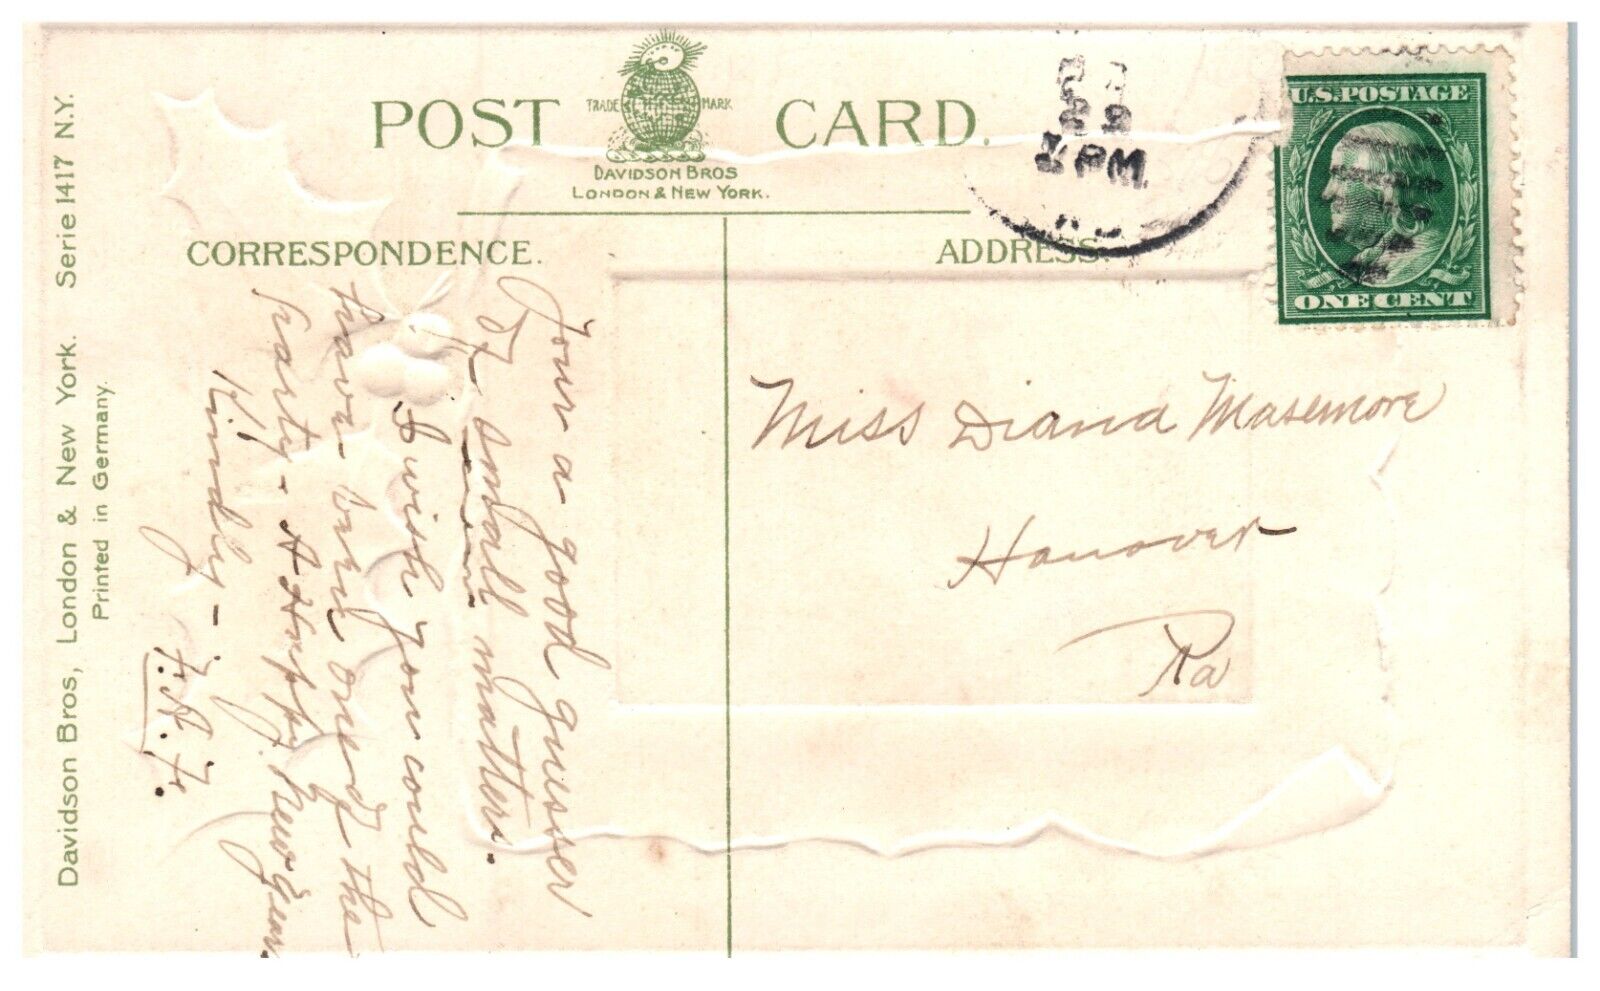 POST CARD.
TRADE MARK
DAVIDSON BROS
LONDON & NEW YORK.
CORRESPONDENCE.
ADDRESS
U.S. POSTAGE
ONE CENT
PM
Davidson Bros, London & New York. Serie 1417 N.Y.
Printed in Germany.
Your a good guesser
of small matters.
I wish you could
have been one of the
party. A Happy New Year
Kindly -
F. A. F.
Miss Diana Masemore
Hanover
Pa